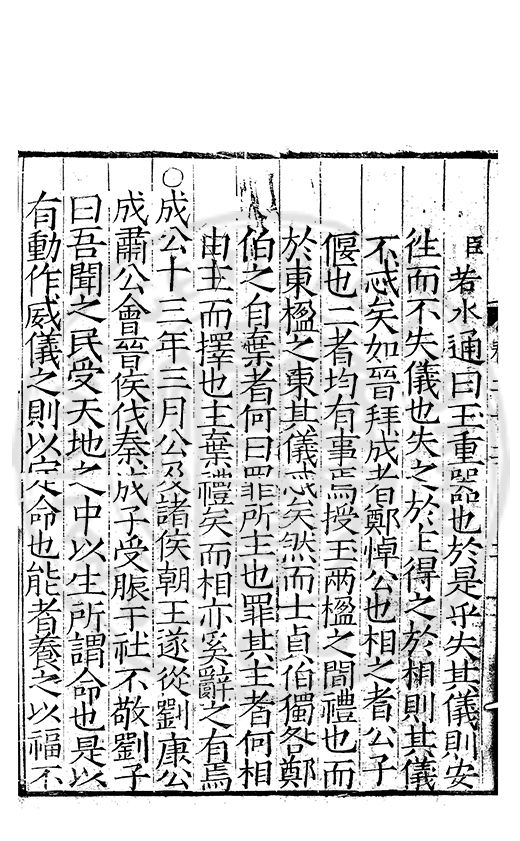 臣若水通曰玉重器也於是乎失其儀則安
徃而不失儀也失之於主得之於相則其儀
不忒矣如晉拜成者鄭悼公也相之者公子
偃也二者均有事焉授玉兩楹之間禮也而
於東楹之東其儀忒矣然而士貞伯獨咎鄭
伯之自棄者何曰罪所主也罪其主者何相
由主而擇也主棄禮矣而相亦奚辭之有焉
○成公十三年三月公及諸侯朝王遂從劉康公
成肅公會晉侯伐秦成子受脤于社不敬劉子
曰吾聞之民受天地之中以生所謂命也是以
有動作威儀之則以定命也能者養之以福不